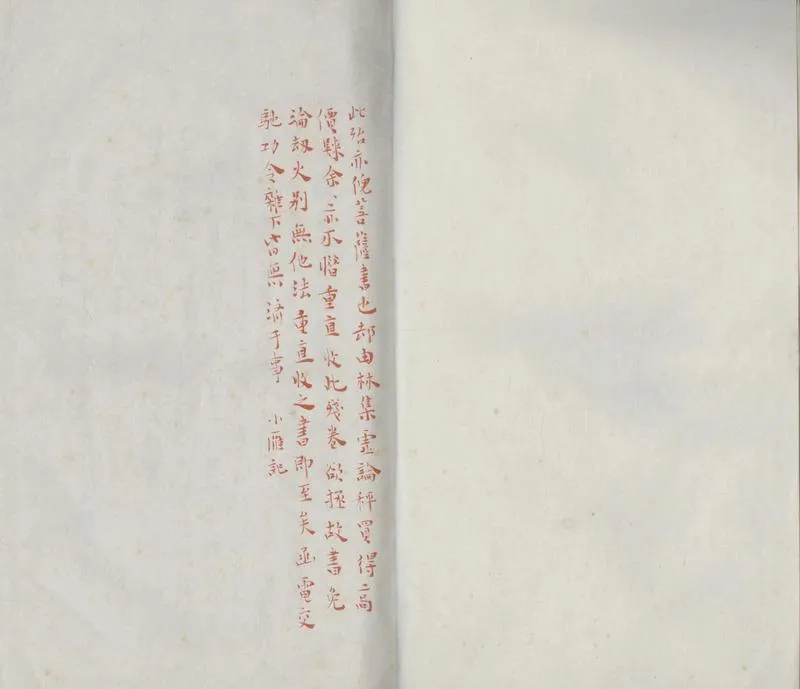 此殆亦傀菩薩書也却由林集虛論秤買得高
價歸余、亦不惜重直收此殘卷欲拯故書免
淪劫火别無他法重直收之書即至矣函電交
馳功令雜下皆無濟于事　小雁記